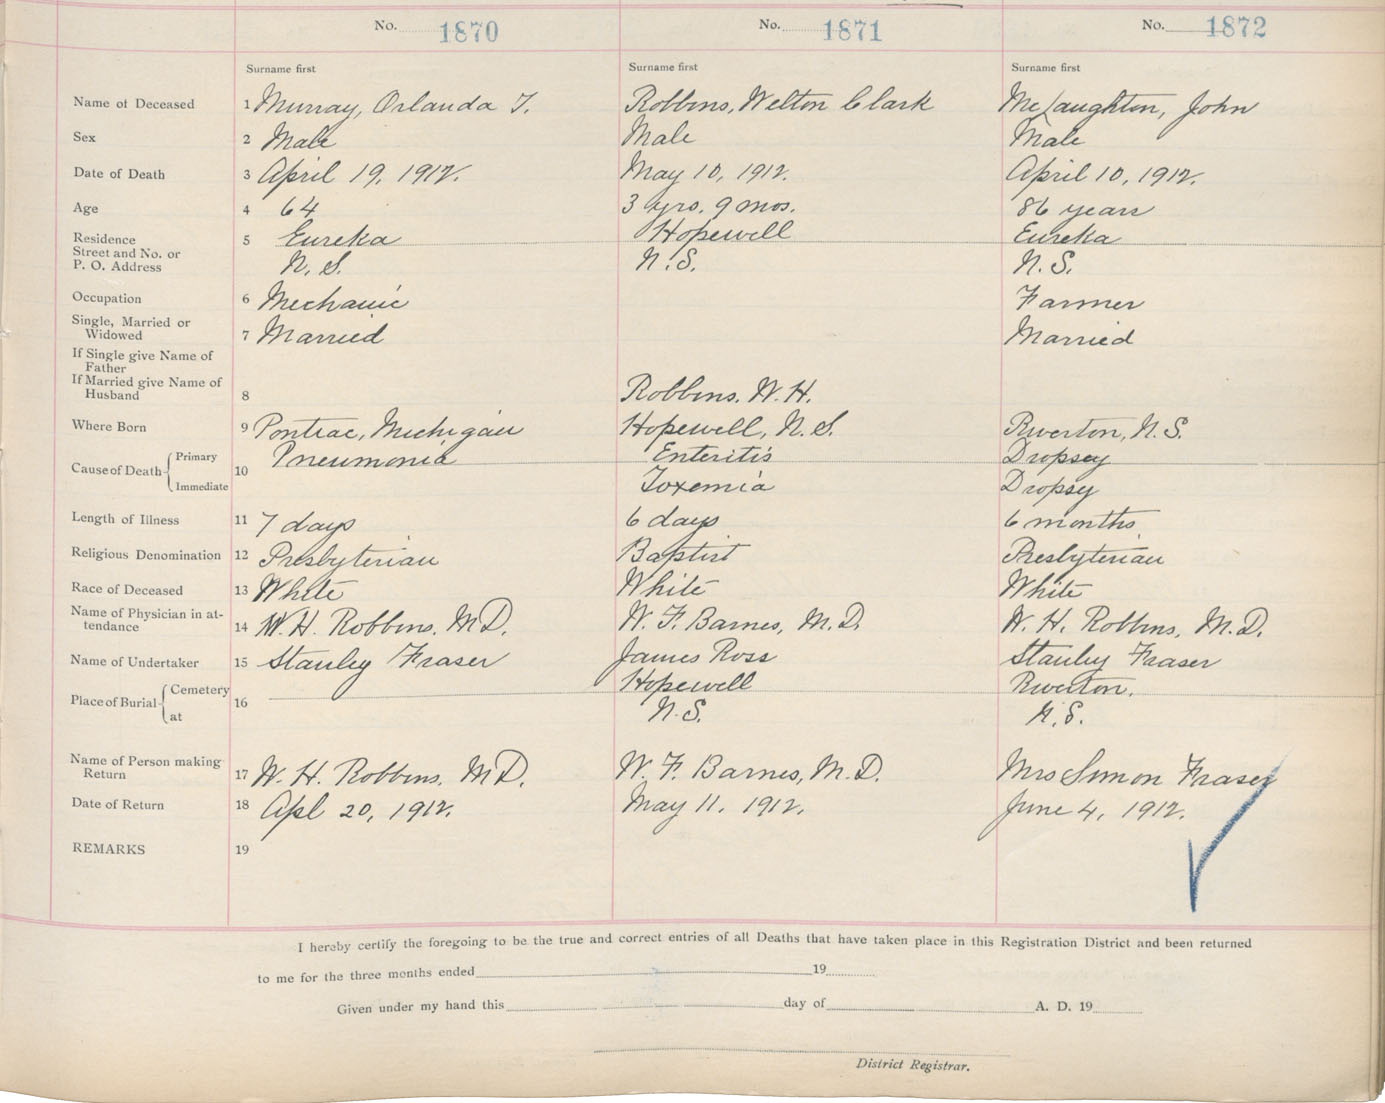 No. 1870 No. 1871 No. 1872
Surname first Surname first Surname first
Name of Deceased 1 Murray, Orlanda T. Robbins, Welton Clark McLaughton, John
Sex 2 Male Male Male
Date of Death 3 April 19, 1912. May 10, 1912. April 10, 1912.
Age 4 64 3 yrs. 9 mos. 86 years
Residence 5 Eureka Hopewell Eureka
Street and No. or
P. O. Address N. S. N. S. N. S.
Occupation 6 Mechanic Farmer
Single, Married or
Widowed 7 Married Married
If Single give Name of
Father
If Married give Name of
Husband 8 Robbins. W. H.
Where Born 9 Pontiac, Michigan Hopewell, N. S. Riverton, N. S.
Cause of Death Primary 10 Pneumonia Enteritis Dropsey
Immediate Toxemia Dropsy
Length of Illness 11 7 days 6 days 6 months
Religious Denomination 12 Presbyterian Baptist Presbyterian
Race of Deceased 13 White White White
Name of Physician in at-
tendance 14 W. H. Robbins. M D. W. F. Barnes, M. D. W. H. Robbins, M. D.
Name of Undertaker 15 Stanley Fraser James Ross Stanley Fraser
Place of Burial Cemetery 16 Hopewell Riverton.
at N. S. N. S.
Name of Person making
Return 17 W. H. Robbins, M D. W. F. Barnes, M. D. Mrs Simon Fraser
Date of Return 18 Apl 20, 1912. May 11. 1912. June 4, 1912.
REMARKS 19
I hereby certify the foregoing to be the true and correct entries of all Deaths that have taken place in this Registration District and been returned
to me for the three months ended 19
Given under my hand this day of A. D. 19
District Registrar.